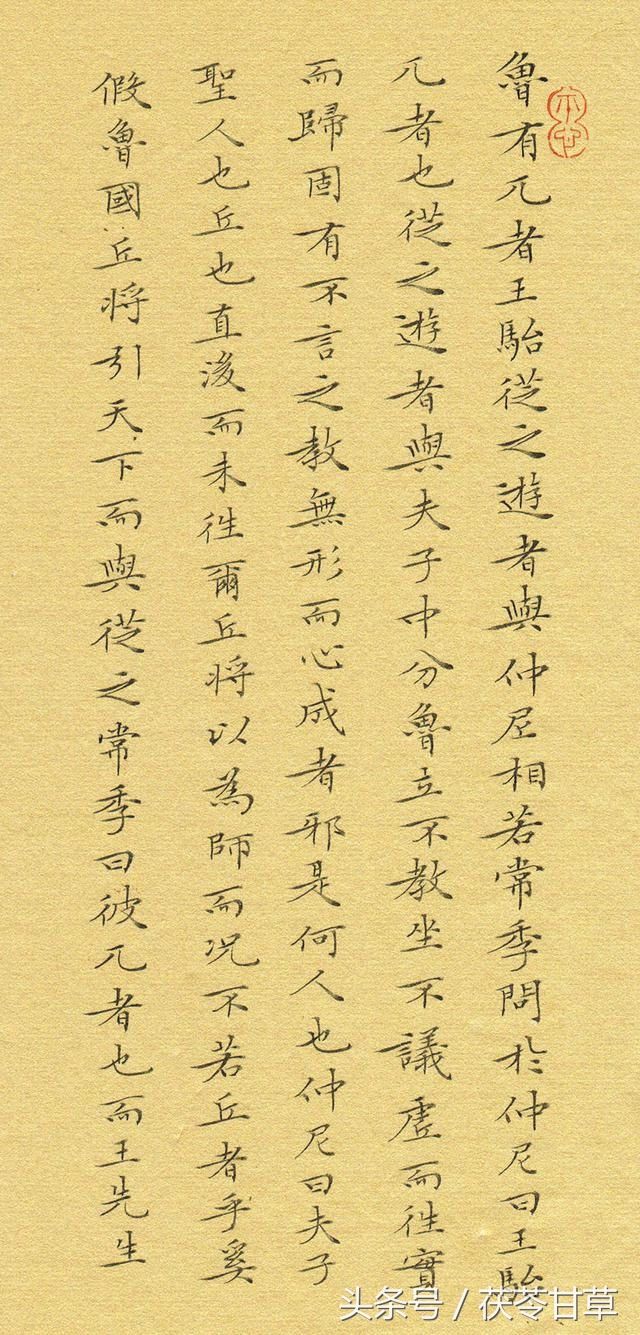 魯有兀者王駘從之遊者與仲尼相若常季問於仲尼曰王駘
兀者也從之遊者與夫子中分魯立不教坐不議虛而往實
而歸固有不言之教無形而心成者邪是何人也仲尼曰夫子
聖人也丘也直後而未往爾丘將以為師而況不若丘者乎奚
假魯國丘將引天下而與從之常季曰彼兀者也而王先生
头条号 / 茯苓甘草